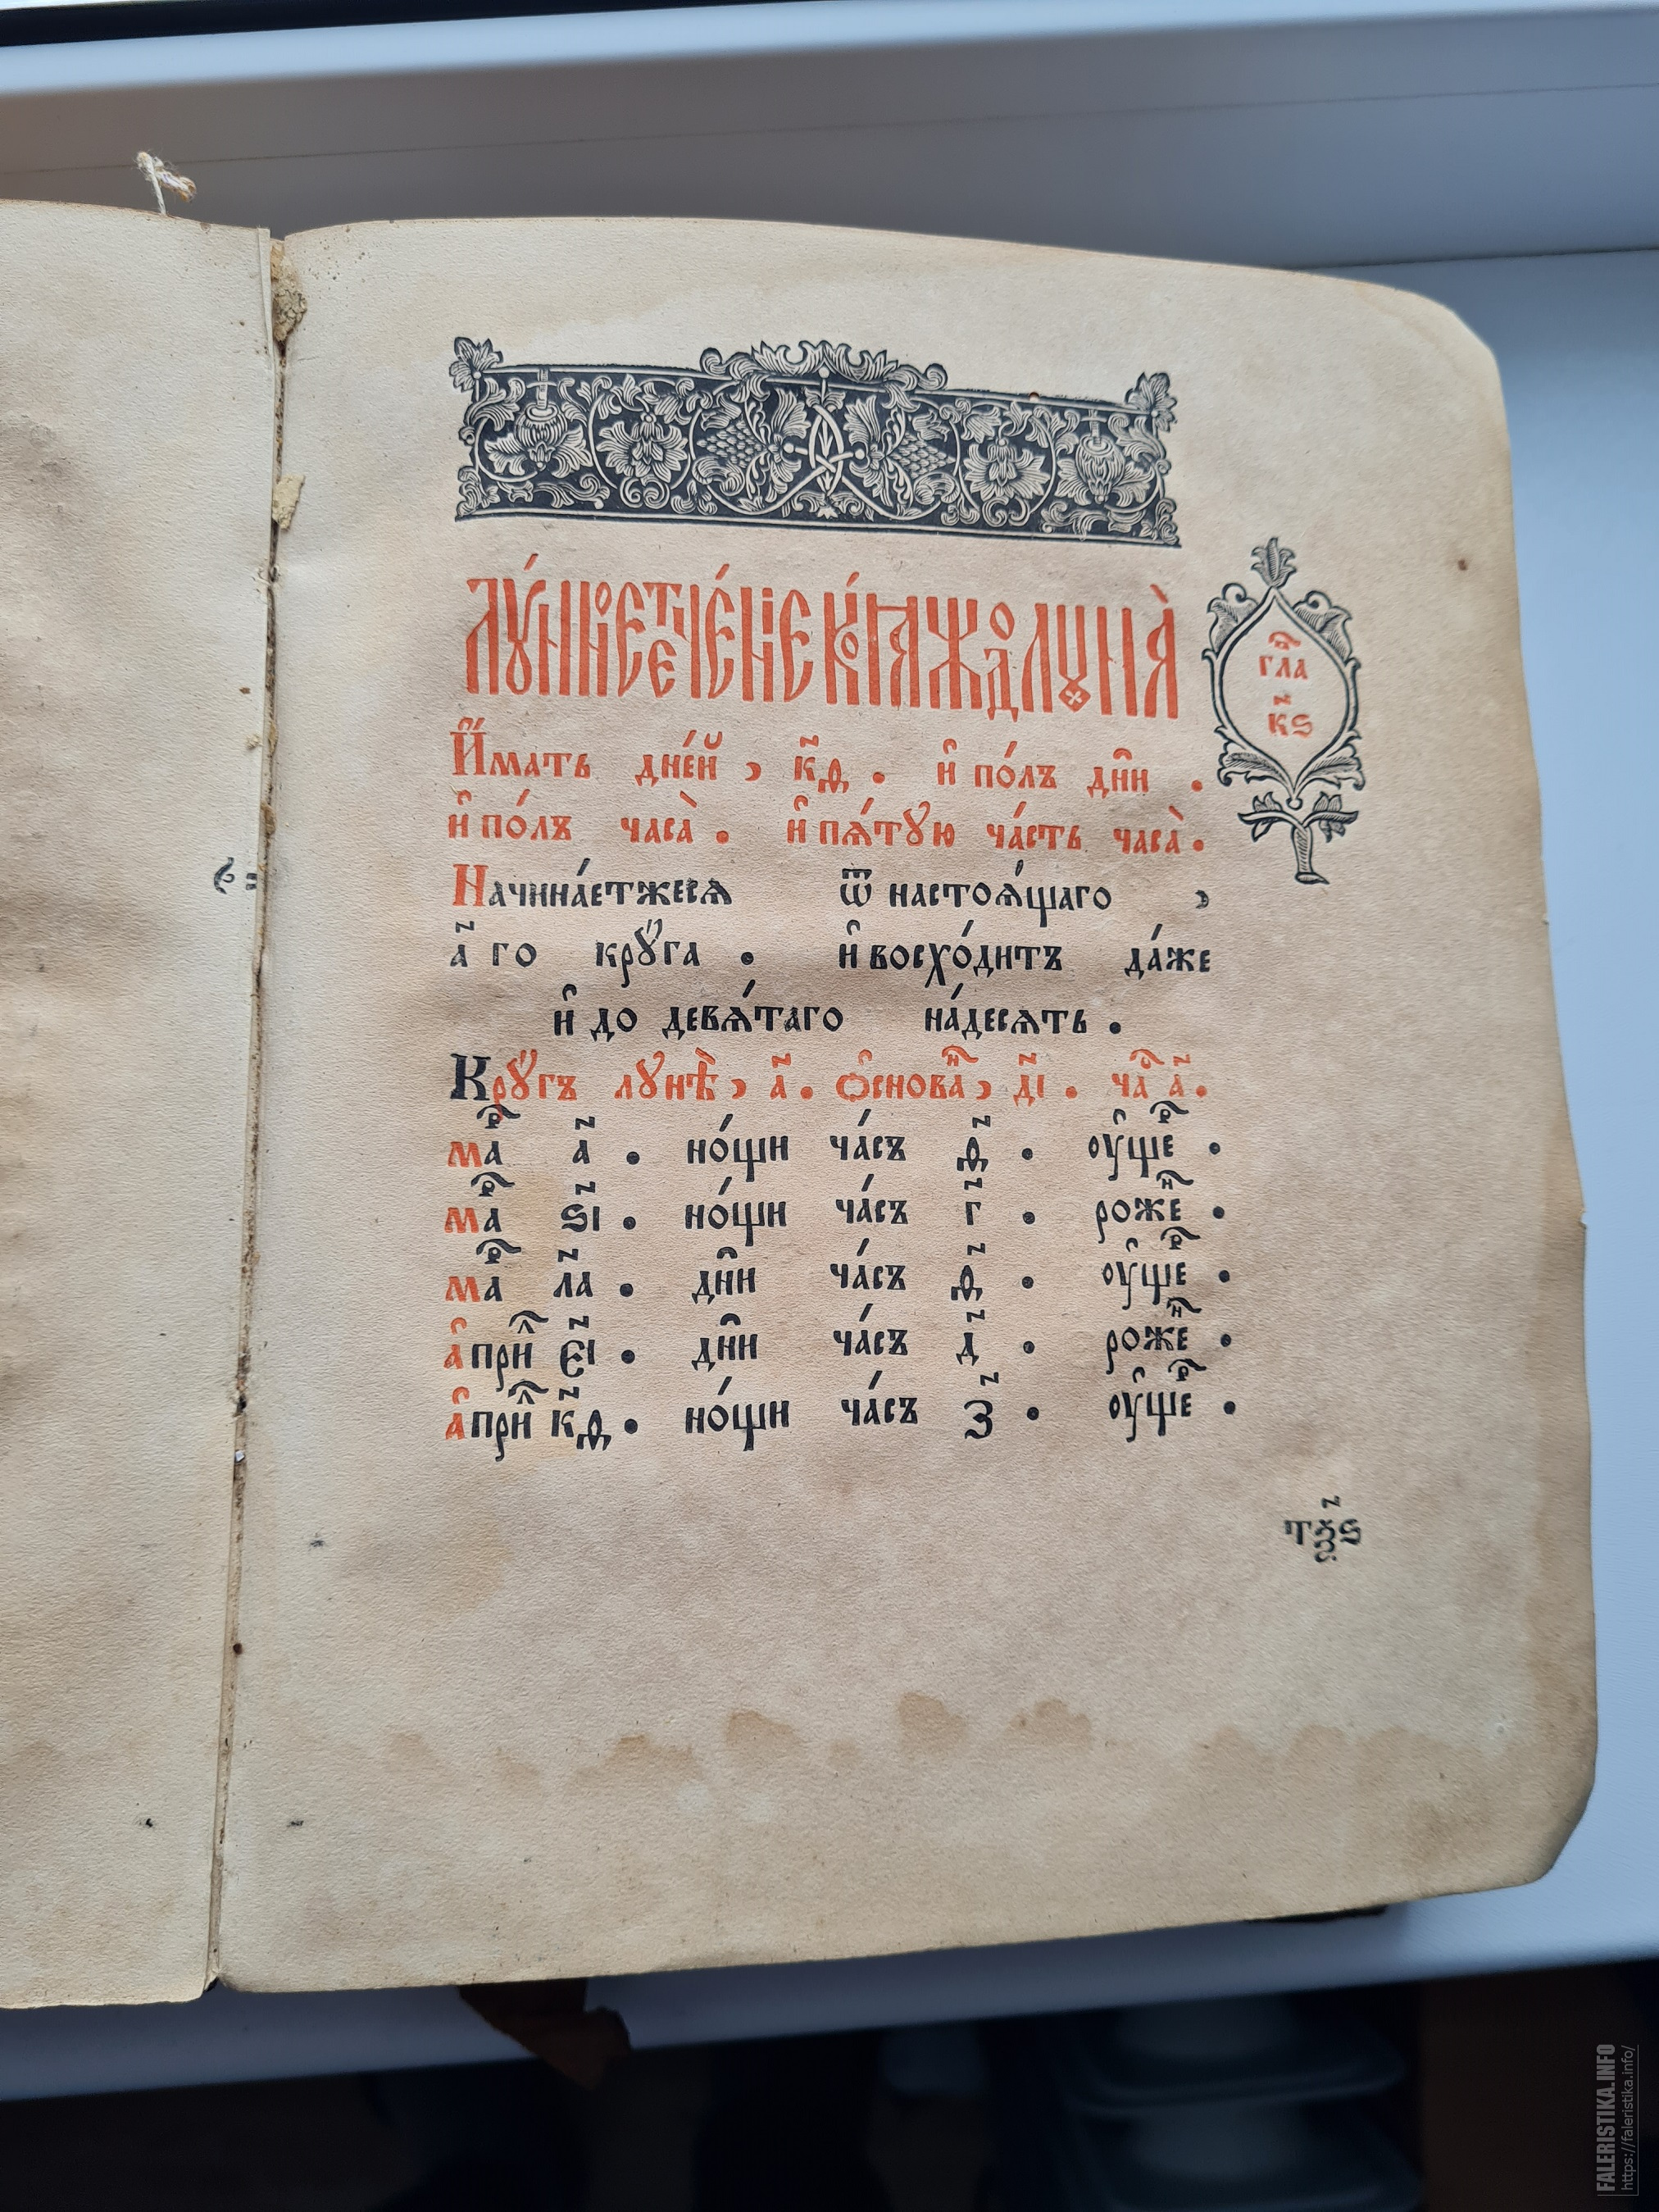 Лꙋ́нное тече́нїе. ко́ѧжⸯдо лꙋна̀
глаⷡ҇
к҃ѕ
И҆́мать дне́й, к҃ѳ. и҆ по́лъ дни̑.
и҆ по́лъ часа̀. и҆ пѧ́тꙋю ча́сть часа̀.
Начина́етжесѧ ѿ настоѧ́щаго,
а҃ го крꙋ́га. и҆ восхо́дитъ да́же
и҆ до девѧ́таго на́десѧть.
Крꙋ́гъ лꙋнѣ̀, а҃. ѻ҆сноваⷩ҇, д҃і. чаⷭ҇ а҃.
маⷬ҇ а҃. но́щи ча́съ ѳ҃. ᲂу҆щеⷬ҇.
маⷬ҇ ѕ҃і. но́щи ча́съ г҃. рожеⷩ҇.
маⷬ҇ л҃а. дни̑ ча́съ ѳ҃. ᲂу҆щеⷬ҇.
а҆приⷧ҇ є҃і. дни̑ ча́съ д҃. рожеⷩ҇.
а҆приⷧ҇ к҃ѳ. но́щи ча́съ з҃. ᲂу҆щеⷬ҇.
FALERISTIKA.INFO
https://faleristika.info/